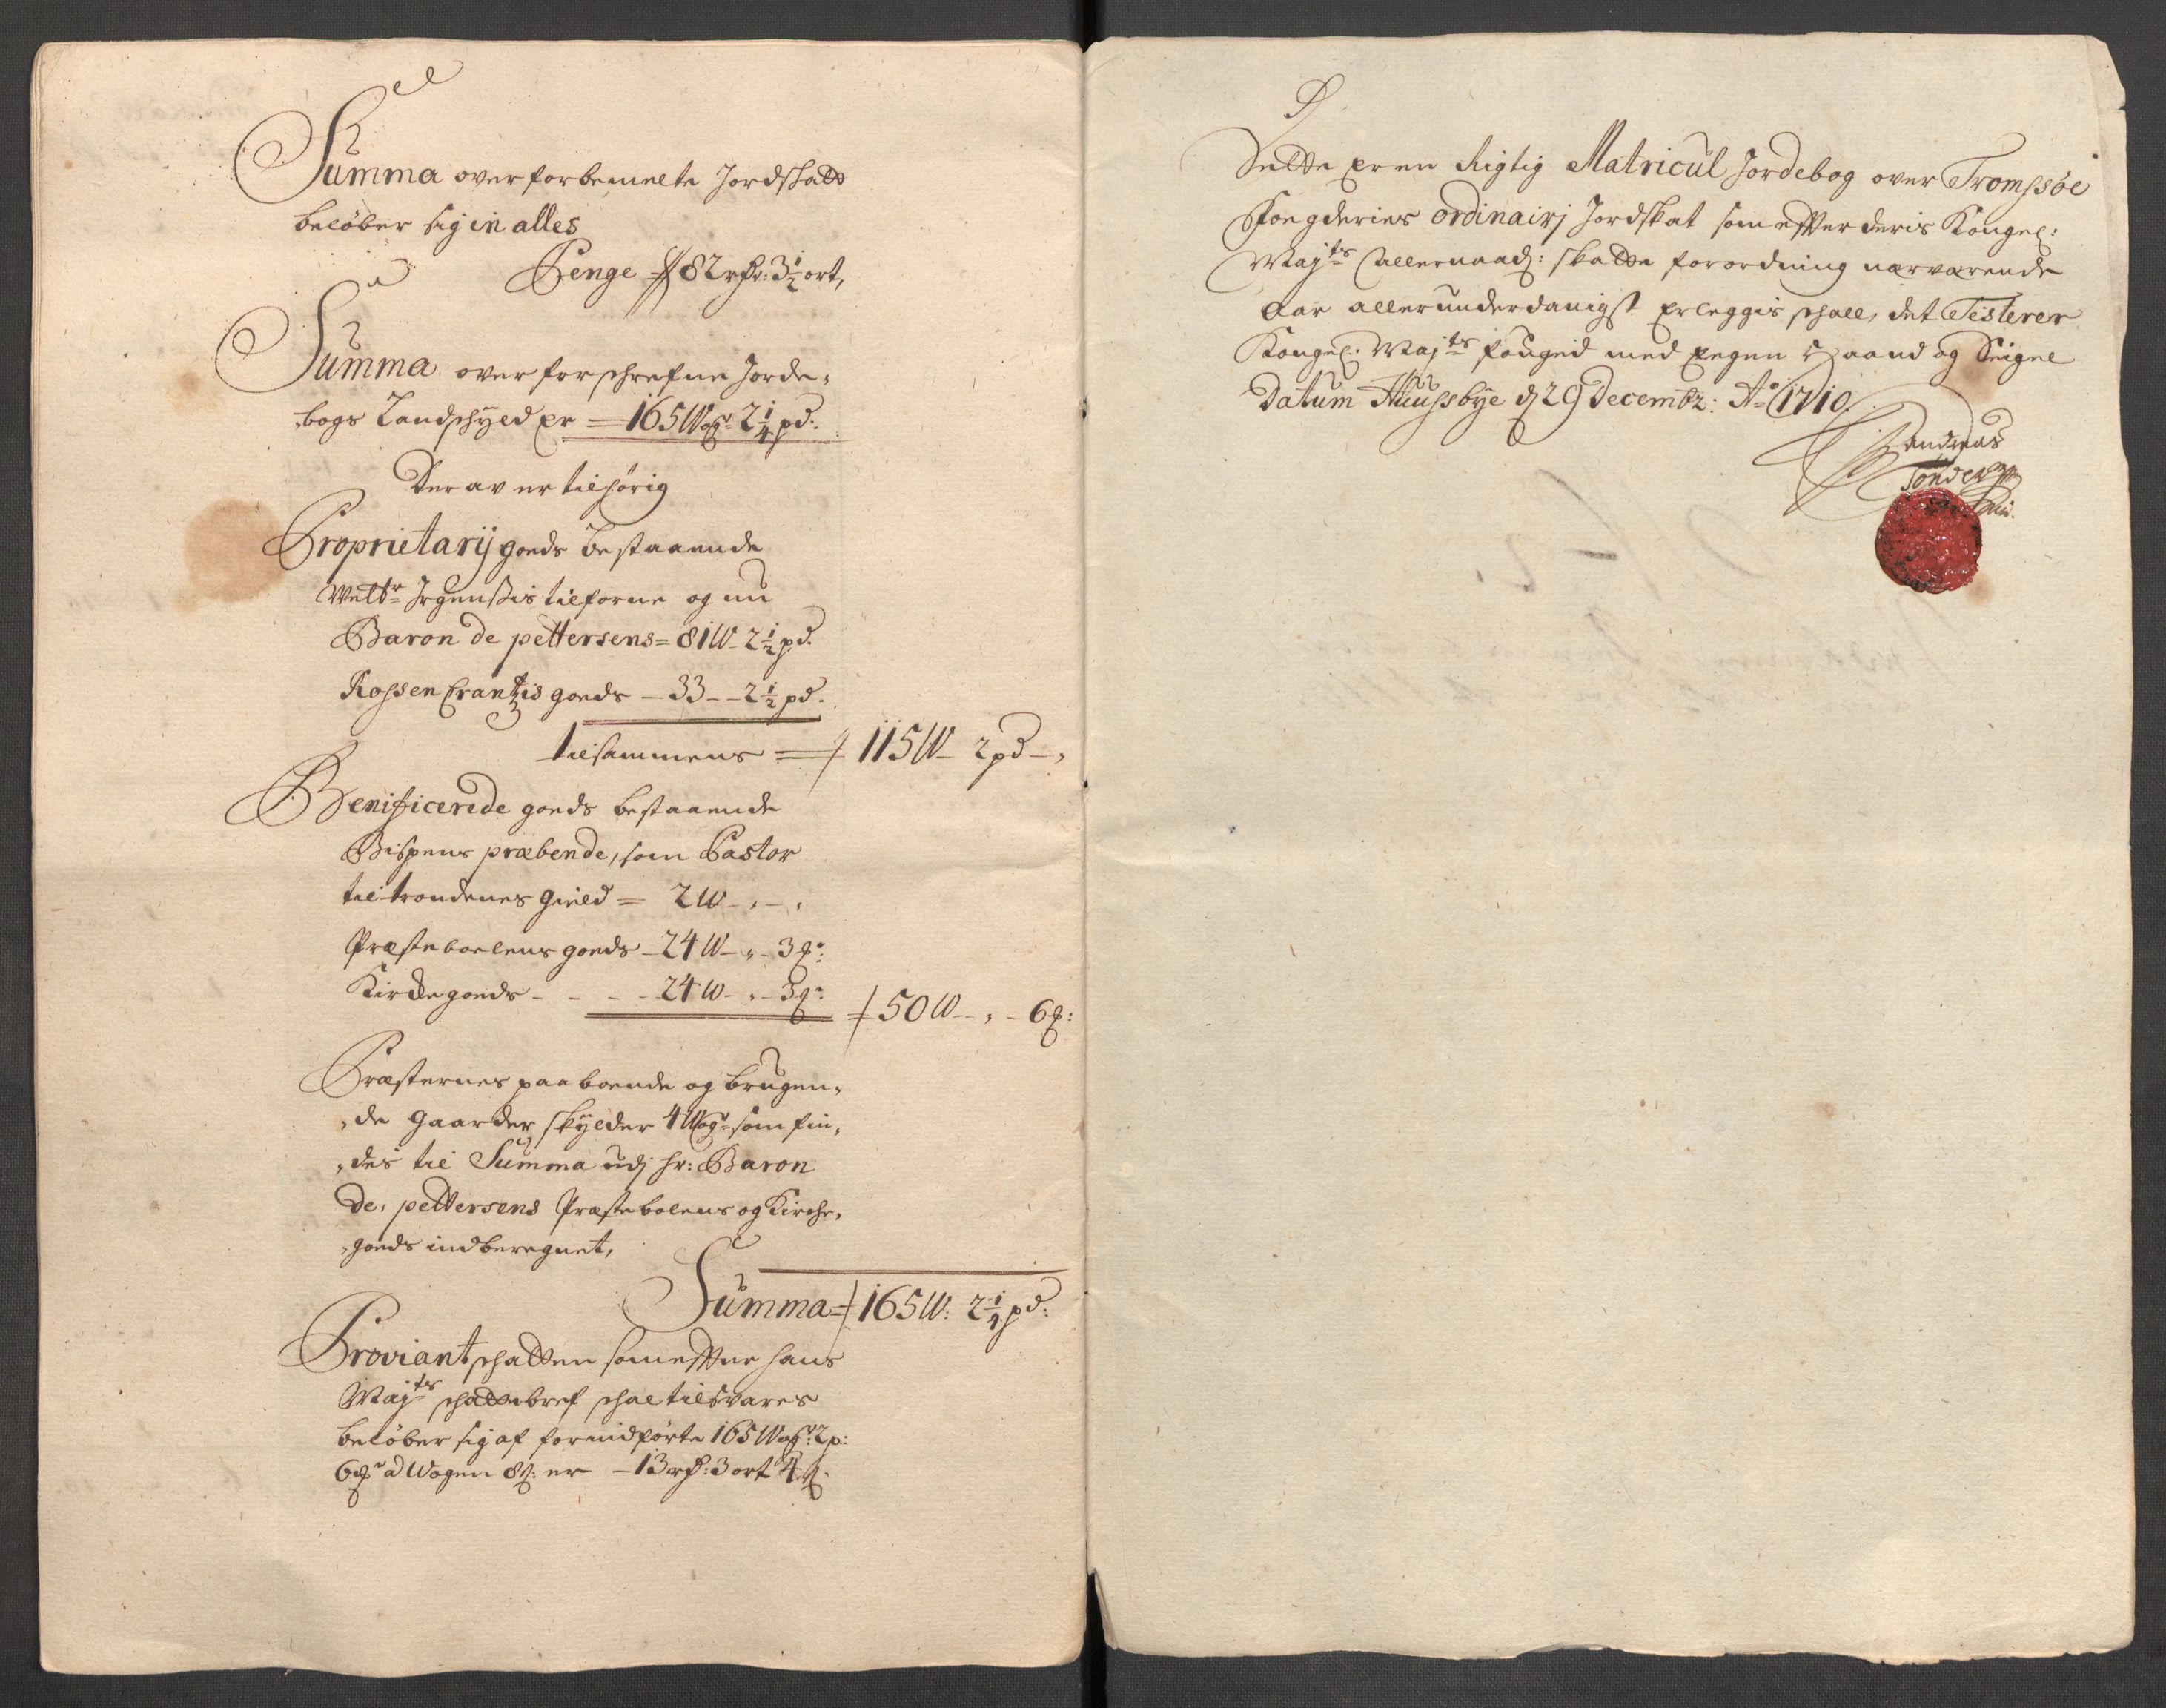 Summa over forbemelte Jordskatt
beløber sig in alles
Penge 82 rdr: 3½ ort,
Summa over forschrefne Jorde,
bogs Landschyld er = 165 Wogr 2¼ pd:
Der av er tilhørig
Proprietarij goeds bestaaende
Welbr Irgensis tilforne og nu
Baron de pettersens = 81 W 2½ pd.
Rossen Crantzis goeds – 33 – – 2½ pd.
tilsammens = 115 W – 2 pd –,
Benificerede goeds bestaaende
Bispens præbende, som Pastor
til trondenes gield = 2 W – , – ,
Præsteboelens goeds – 24 W – „ – 3 ℔:
Kirkegoeds – – – – 24 W – „ – 3 ℔:
50 W – , – 6 ℔:
Præsternes paaboende og brugen,
,de gaarder skylder 4 Wogr som fin,
,des til Summa udj hr: Baron
De, pettersens Præstebolens og Kirche,
,goeds indberegnet,
Summa = 165 W: 2¼ pd:
Proviant schatten som effter hans
Mayts schattebref schal tilsvares
beløber sig af formidførte 165 Wogr: 2 p:
6 ℔r a Wogen 8 s: er – 13 rdr: 3 ort 4 s.
Dette er en Rigtig Matricul Jordebog over Tromssøe
Foegderies ordinairj Jordskat som effter deris Kongel:
Mayts allernaad: skatte forordning nærværende
Aar allerunderdanigst erleggis schall, det Testerer
Kongel. Mayts fouged med Eegen Haand og Seigel
Datum Huussbye d 29 Decembr: Ao 1710.
Andreas
Tønder